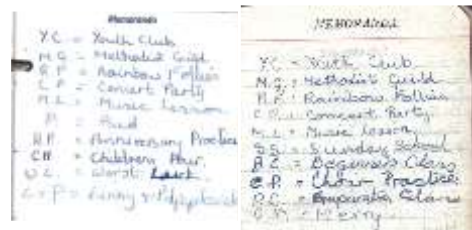 Memoranda
Y.C = Youth Club
M.G = Methodist Guild
R.F = Rainbow Follies
C.P = Concert Party
M.L = Music Lesson
A.P. = Anniversary Practice
CH = Childrens Hour
MEMORANDA
Y.C = Youth Club
M.G. = Methodist Guild
R.F. = Rainbow Follies
C.P. = Concert Party
M.L = Music Lesson
S.S. = Sunday School
B.C = Beginners Class
C.P. = Choir Practice
Class